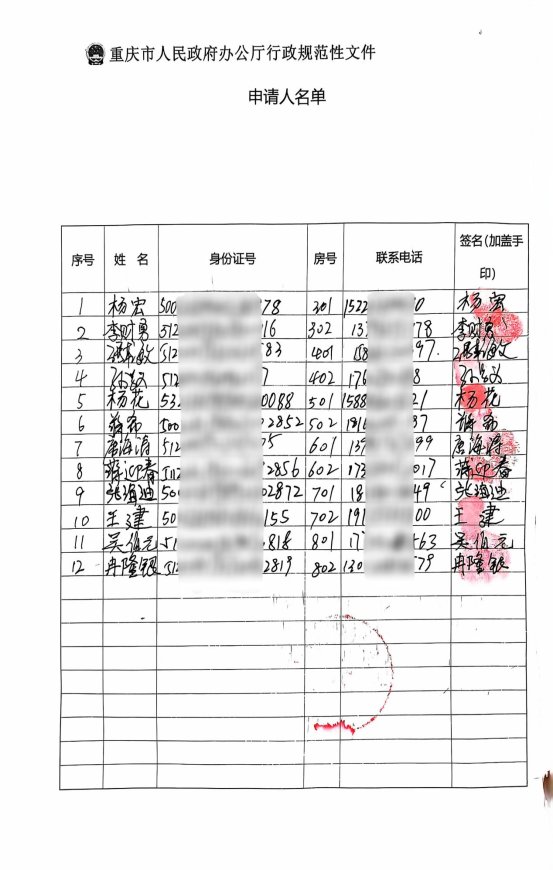 重庆市人民政府办公厅行政规范性文件
申请人名单
序号 姓 名 身份证号 房号 联系电话 签名(加盖手印)
1 杨宏 500 78 301 1522 0 杨宏
2 李财勇 512 16 302 13 78 李财勇
3 敏 512 83 401 158 97 敏
4 512 7 402 176 8
5 杨花 53 0088 501 1588 21 杨花
6 蒋希 500 2852 502 1916 37 蒋希
7 唐海涛 512 5 601 139 99 唐海涛
8 蒋迎春 512 2856 602 173 017 蒋迎春
9 海迪 50 02872 701 18 49 海迪
10 王建 50 155 702 191 00 王建
11 吴伯元 51 818 801 17 563 吴伯元
12 冉隆银 512 2819 802 130 79 冉隆银